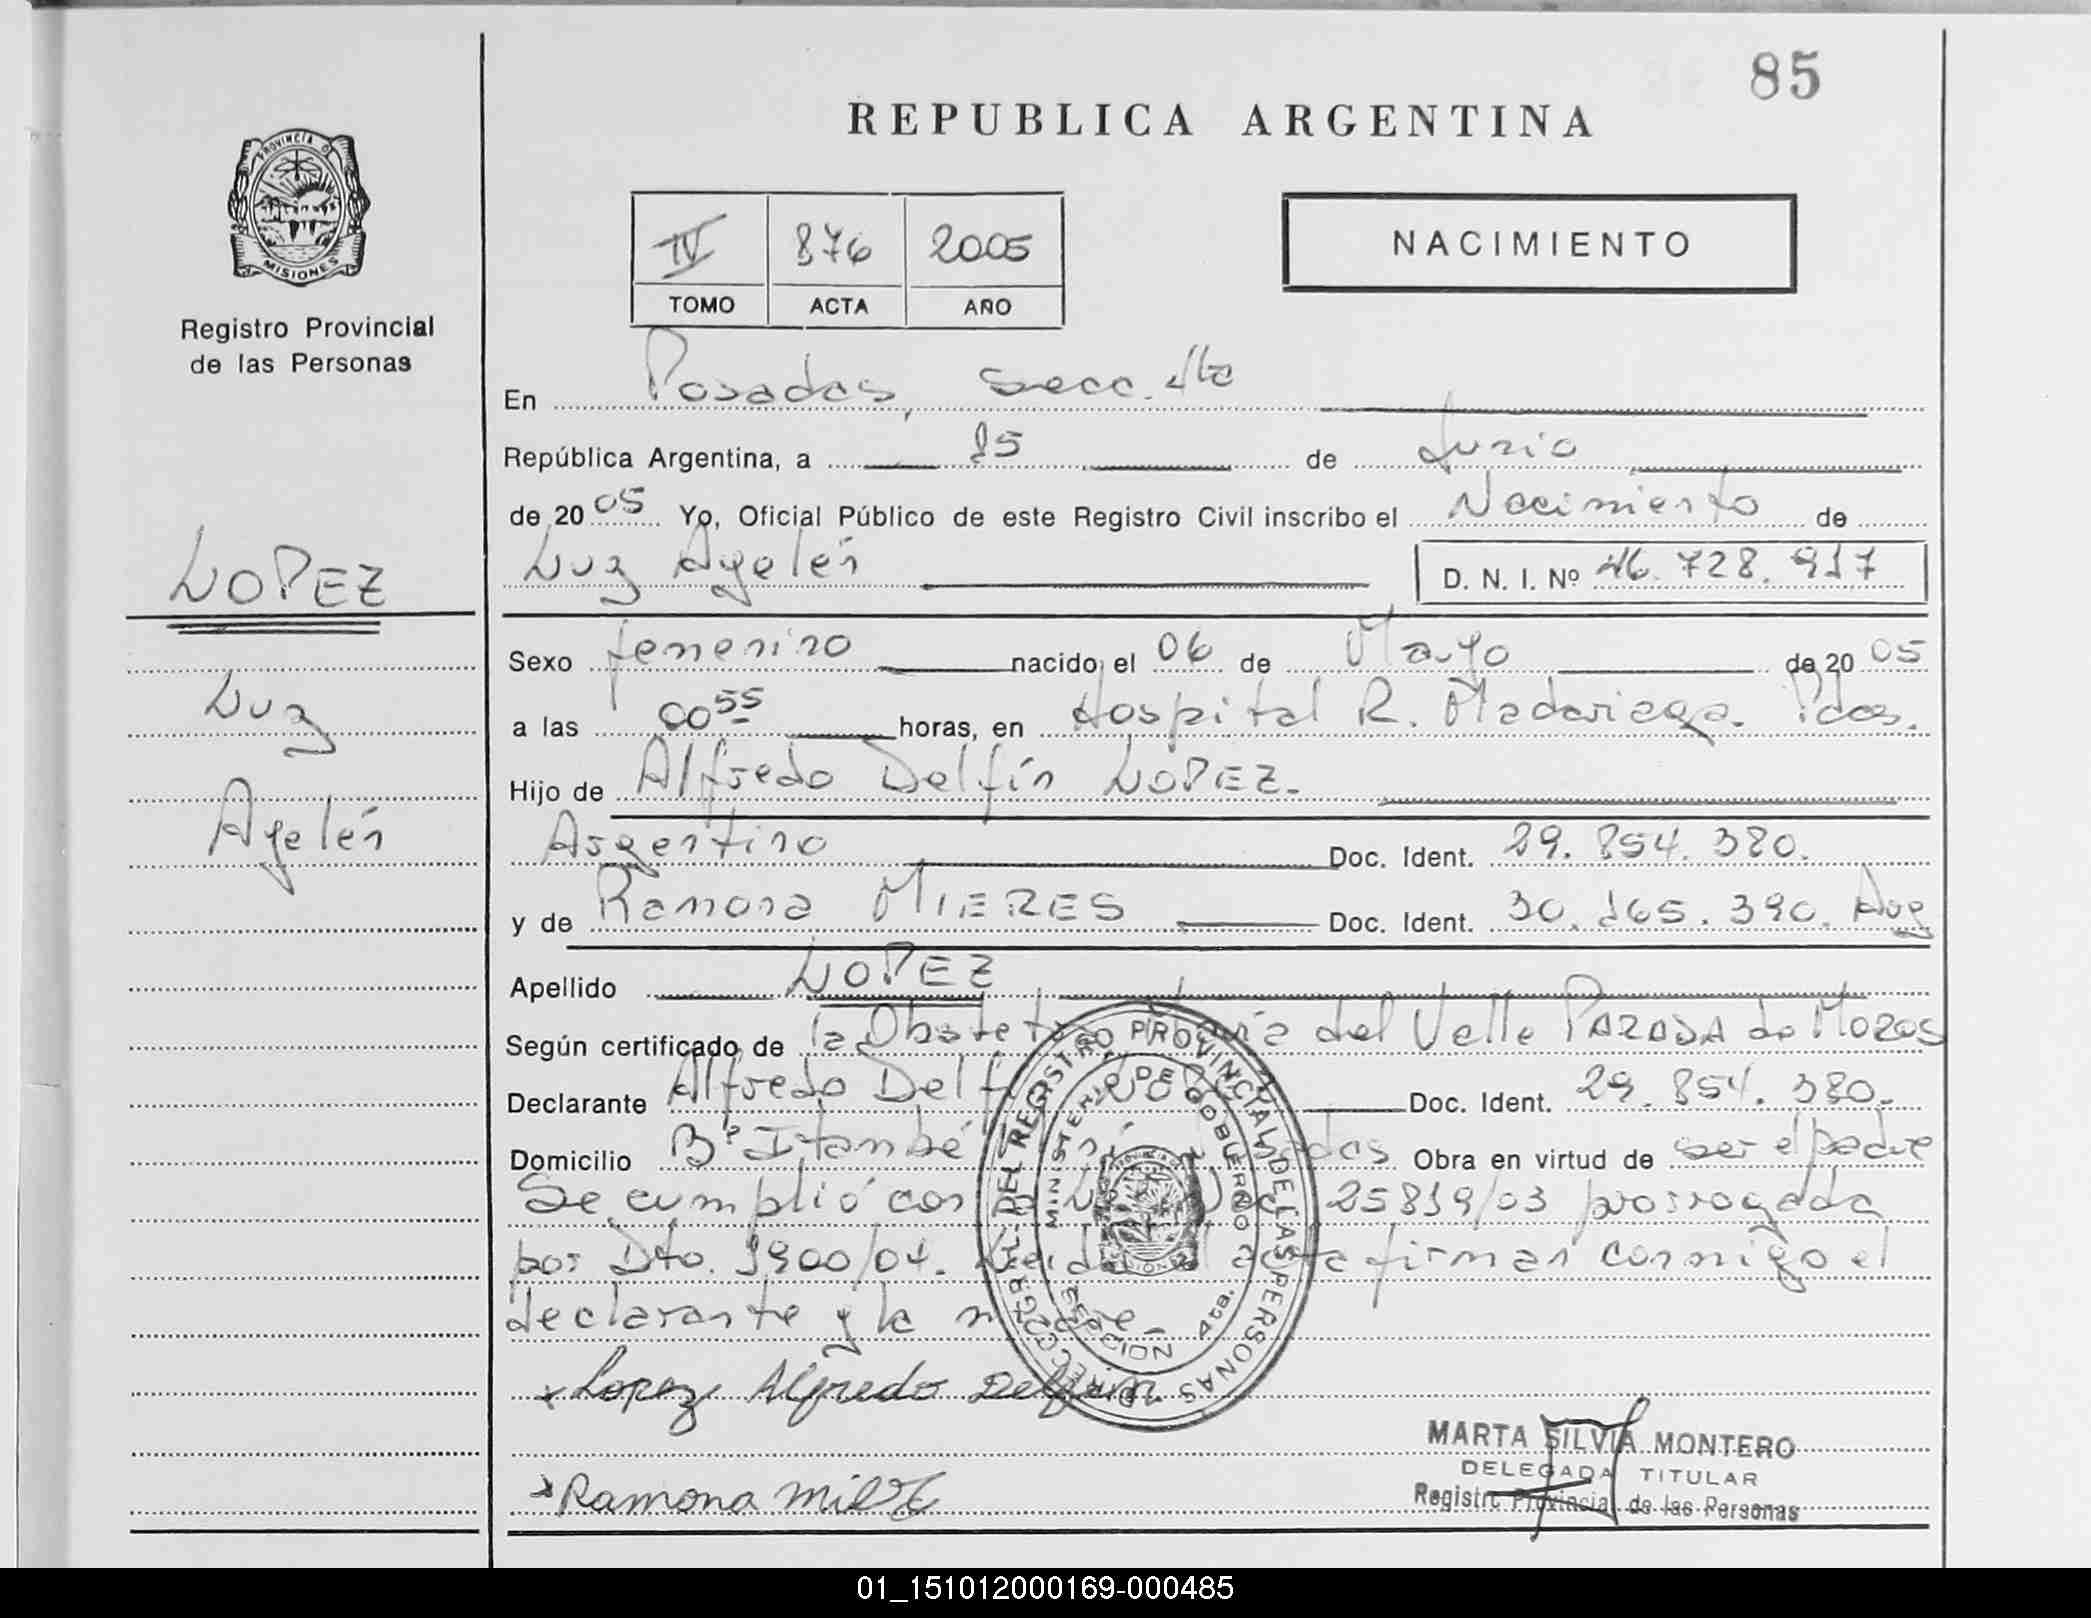 85
REPUBLICA ARGENTINA
PROVINCIA D
MISIONES
Registro Provincial
de las Personas
IV 876 2005
TOMO ACTA AÑO
NACIMIENTO
En Posadas, Secc. 4ta
República Argentina, a 15 de Junio
de 2005 Yo, Oficial Público de este Registro Civil inscribo el Nacimiento de
Luz Ayelén D. N. I. Nº 46.728.917
LOPEZ
Luz
Ayelén
Sexo femenino nacido el 06 de Mayo de 2005
a las 00 55 horas, en Hospital R. Madariaga. Pdas.
Hijo de Alfredo Delfín LOPEZ.
Argentino Doc. Ident. 29.854.380.
y de Ramona MIERES Doc. Ident. 30.165.390. Arg
Apellido LOPEZ
Según certificado de la Obstetra María del Valle PARADA de MOROS
Declarante Alfredo Delfín LOPEZ Doc. Ident. 29.854.380.
Domicilio Bº Itambé Miní Posadas Obra en virtud de ser el padre
Se cumplió con Ley Nac 25819/03 prorrogada
por Dto. 1900/04. Leída el acta firman conmigo el
declarante y la madre-
x Lopez Alfredo Delfin
x Ramona
DIRECCION GRAL. DEL REGISTRO PROVINCIAL DE LAS PERSONAS
MINISTERIO DE GOBIERNO
SECCION 4ta.
MARTA SILVIA MONTERO
DELEGADA TITULAR
Registro Provincial de las Personas
01_151012000169-000485